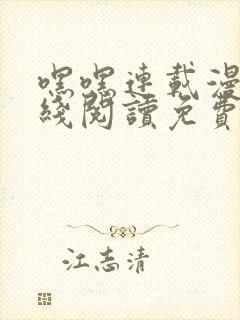 嘿嘿連載漫
綫閱讀免費
江志清